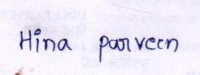 Hina parveen